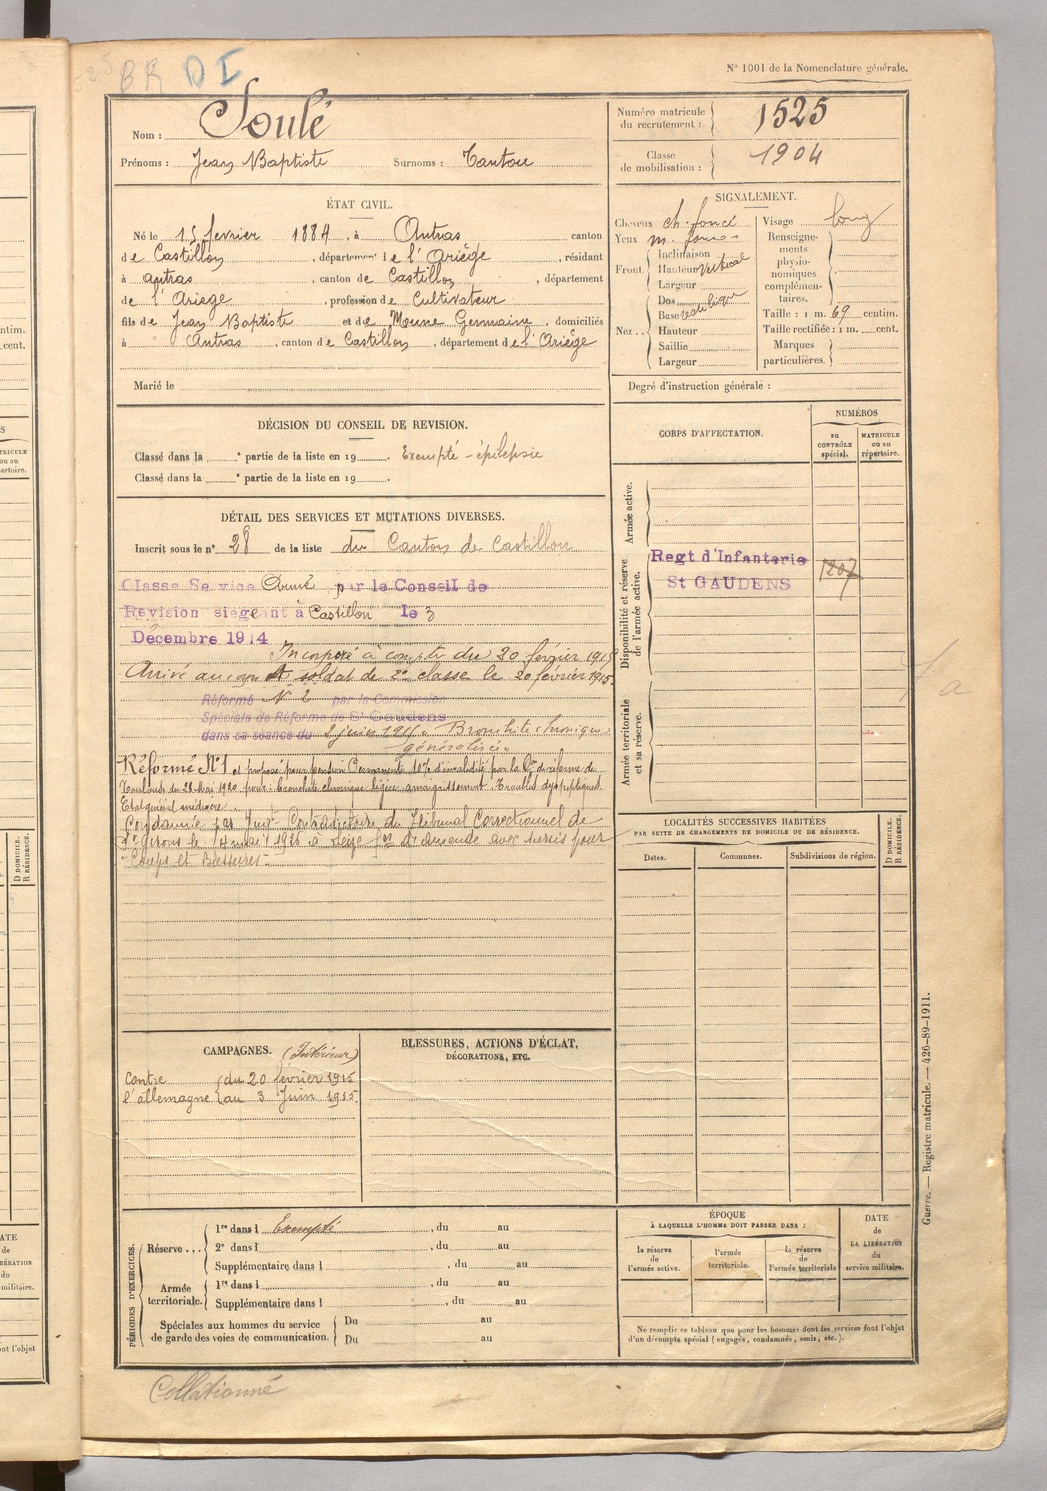 BR DI
N° 1001 de la Nomenclature générale.
Nom : Soulé
Prénoms : Jean Baptiste Surnoms : Tantou
Numéro matricule du recrutement : 1525
Classe de mobilisation : 1904
ÉTAT CIVIL.
Né le 15 fevrier 1884, à Antras canton
de Castillon, département de l'Ariège, résidant
à antras, canton de Castillon, département
de l'Ariege, profession de Cultivateur
fils de Jean Baptiste et de Moune Germaine, domiciliés
à Antras, canton de Castillon, département de l'Ariège
Marié le
SIGNALEMENT.
Cheveux ch. foncé
Yeux m.
Front. Inclinaison
Hauteur vertical
Largeur
Nez .. Dos
Base
Hauteur
Saillie
Largeur
Visage long
Renseignements physionomiques complémentaires.
Taille : 1 m. 69 centim.
Taille rectifiée : 1 m. cent.
Marques particulières.
Degré d'instruction générale :
DÉCISION DU CONSEIL DE REVISION.
Classé dans la ° partie de la liste en 19 . Exempté - épilepsie
Classé dans la ° partie de la liste en 19 .
DÉTAIL DES SERVICES ET MUTATIONS DIVERSES.
Inscrit sous le n° 28 de la liste du Canton de Castillon
Classe Service Armé par le Conseil de
Révision siégeant à Castillon le 3
Décembre 1914
Incorporé à compter du 20 février 1915
Arrivé au corps et soldat de 2e classe le 20 février 1915.
Réformé N° 2 par la Commission
Spéciale de Réforme de St Gaudens
dans sa séance du 2 juin 1915 Bronchite chronique
généralisée
Réformé N°1 et proposé pour pension Permanente 10% d'invalidité par la de réforme de
Toulouse du 28 Mai 1920 pour : bronchite chronique légère, amaigrissement. Troubles dyspeptiques.
Etat général médiocre.
Condamné par Jugt Contradictoire du Tribunal Correctionnel de
St Girons le mai 1926 à Seize d'amende avec sursis pour
"Coups et Blessures"
CORPS D'AFFECTATION.
NUMÉROS
au CONTRÔLE spécial.
MATRICULE ou au répertoire.
Armée active.
Disponibilité et réserve de l'armée active.
Regt d'Infanterie
St GAUDENS
1207
Armée territoriale et sa réserve.
LOCALITÉS SUCCESSIVES HABITÉES
PAR SUITE DE CHANGEMENTS DE DOMICILE OU DE RÉSIDENCE.
D DOMICILE.
R RÉSIDENCE.
Dates. Communes. Subdivisions de région.
CAMPAGNES. (Intérieur)
Contre l'allemagne
du 20 février 1915
au 3 Juin 1915.
BLESSURES, ACTIONS D'ÉCLAT,
DÉCORATIONS, ETC.
PÉRIODES D'EXERCICES.
Réserve ...
1re dans l Exempté, du au
2e dans l , du au
Supplémentaire dans l , du au
Armée territoriale.
1re dans l , du au
Supplémentaire dans l , du au
Spéciales aux hommes du service
de garde des voies de communication.
Du au
Du au
ÉPOQUE
À LAQUELLE L'HOMME DOIT PASSER DANS :
la réserve de l'armée active.
l'armée territoriale.
la réserve de l'armée territoriale
DATE de LA LIBÉRATION du service militaire.
Ne remplir ce tableau que pour les hommes dont les services font l'objet
d'un décompte spécial (engagés, condamnés, omis, etc.).
Guerre. — Registre matricule. — 426-89-1911.
Collationné